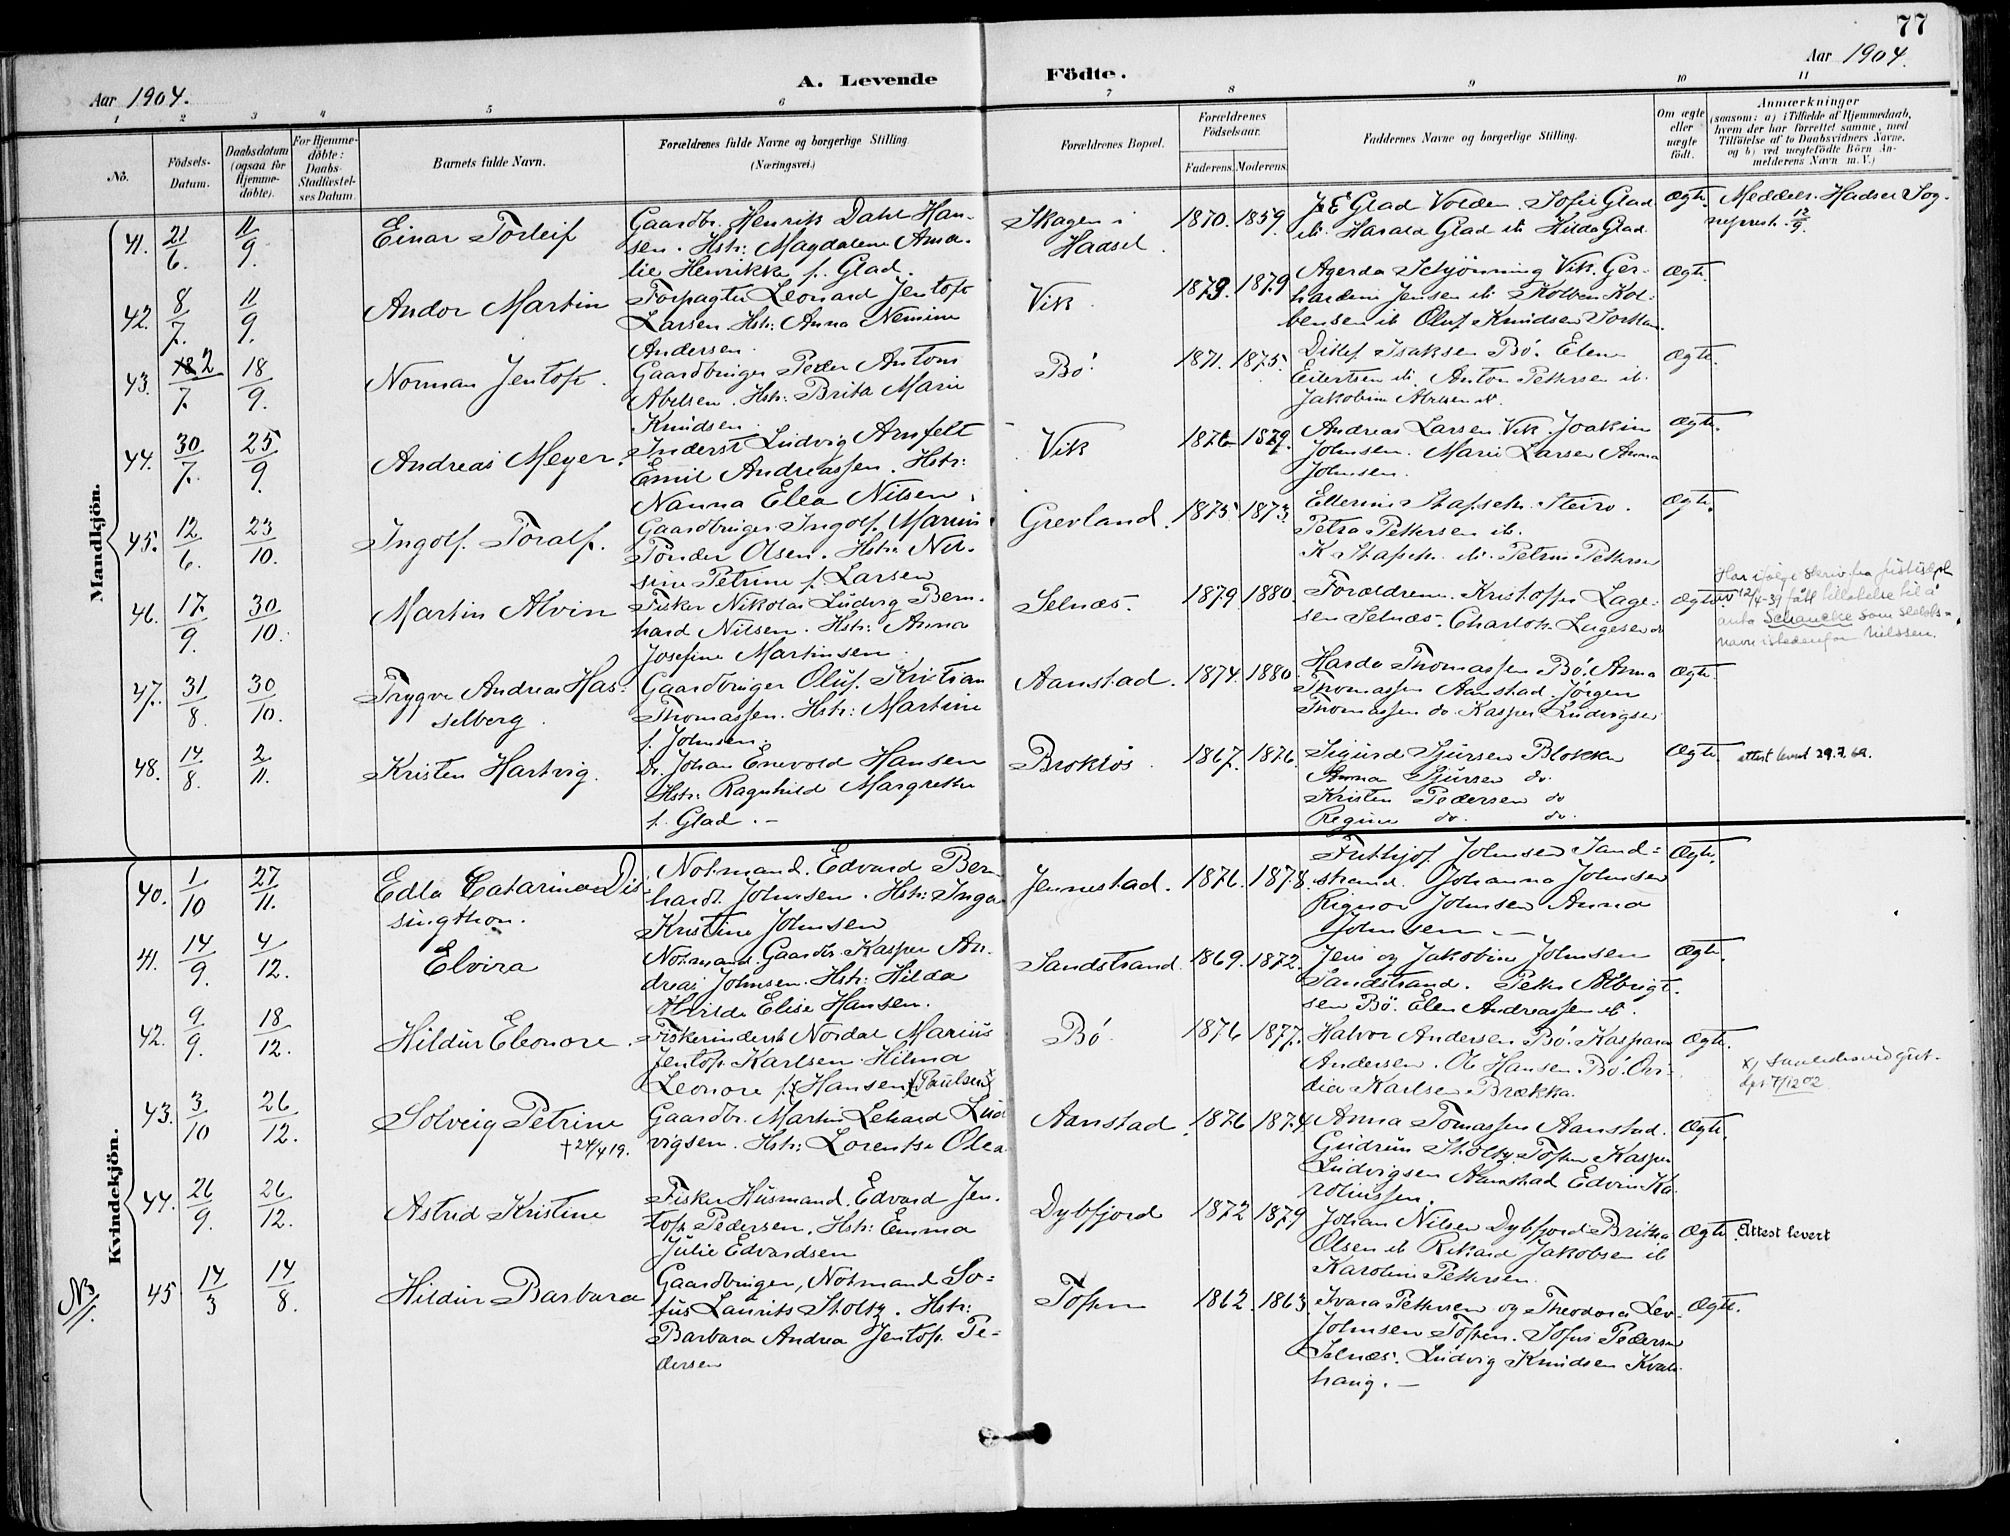 77
Aar 1904.
A. Levende Födte.
Aar 1904.
1 2 3 4 5 6 7 8 9 10 11
No.
Födsels-Datum.
Daabsdatum (ogsaa for Hjemme-döbte).
For Hjemme-döbte: Daabs-Stadfæstel-ses Datum.
Barnets fulde Navn.
Forældrenes fulde Navne og borgerlige Stilling (Næringsvei.)
Forældrenes Bopæl.
Forældrenes Födselsaar.
Faderens. Moderens.
Faddernes Navne og borgerlige Stilling.
Om ægte eller uægte födt.
Anmærkninger
(saasom: a) i Tilfælde af Hjemmedaab,
hvem der har forrettet samme, med
Tilföielse af to Daabsvidners Navne.
og b) ved uægtefödte Börn An-
melderens Navn m. V.)
Mandkjön.
41. 21/6. 11/9. Einar Torleif
Gaardbr. Henrik Dahl Han-
sen. Hstr: Magdalene Ama-
lie Henrikke f. Glad.
Skagen i
Hadsel.
1870. 1859.
J E Glad Volden. Sofie Glad
ib. Harald Glad ib Hilda Glad
Ægte.
Meddelt Hadsel Sog-
neprest. 12/9.
42. 8/7. 11/9. Andor Martin
Forpagter Leonard Jentoft
Larsen. Hstr: Anna Nemine
Andersen.
Vik
1873. 1879
Agerda Schjönning Vik. Ger-
hardine Jensen ib. Kolben Kol-
bensen ib Oluf Knudsen
Ægte.
43. 2/7. 18/9. Norman Jentoft.
Gaardbruger Peder Antoni
Abelsen. Hstr: Brita Marie
Knudsen.
Bö
1871. 1875.
Ditlef Isaksen Bö. Elen
Eilertsen ib. Anton Pettersen ib.
Jakobine Abelsen ib.
Ægte.
44. 30/7. 25/9. Andreas Meyer.
Inderst Ludvig Arnfelt
Emil Andreassen. Hstr:
Nanna Elea Nilsen.
Vik
1876 1879.
Andreas Larsen Vik. Joakim
Johnsen. Marie Larsen Anna
Johnsen.
Ægte.
45. 12/6. 23/10. Ingolf. Toralf.
Gaardbruger Ingolf. Marius
Tönder Olsen. Hstr. Nil-
sine Petrine f. Larsen
Grevland.
1875 1873.
Ellerine Steiro.
Petra Pettersen ib.
K ib. Petrine Pettersen
Ægte.
46. 17/9. 30/10. Martin Alvin
Fisker Nikolai Ludvig Bern-
hard Nilsen. Hstr: Anna
Josefine Martinsen.
Selnæs.
1879 1880.
Forældrene. Kristoffer Lage-
sen Selnæs. Charlotte Lagesen do
Ægte.
Har ifölge skriv fra justisdept
12/4-39 fått tillatelse til å
anta Schancke som slekts-
navn istedenfor Nielssen.
47. 31/8. 30/10. Trygve Andreas Has-
selberg.
Gaardbruger Oluf. Kristian
Thomassen. Hstr: Martine
f. Johnsen.
Aanstad.
1874. 1880.
Harda Thomassen Bö. Anna
Thomassen Aanstad. Jörgen
Thomassen do. Kasper Ludvigsen
Ægte.
48. 14/8. 2/11. Kristen Hartvig.
Johan Enevold Hansen
Hstr: Ragnhild Margrethe
f. Glad.
Broklös.
1867. 1876.
Sigurd Sjursen Blokken
Anna Sjursen do.
Kristen Pedersen do
Regine do. do.
Ægte.
attest levert 29.7.62.
Kvindekjön.
40. 1/10 27/11. Edla Catarina Dis-
singthon.
Notmand. Edvard Bern-
hardt Johnsen. Hstr: Inga
Kristine Johnsen
Jennestad.
1876. 1878.
Frithjof Johnsen Sand-
strand. Johanna Johnsen
Rignor Johnsen Anna
Johnsen
Ægte.
41. 14/9. 4/12. Elvira
Notmand Gaardbr. Kasper An-
dreas Johnsen. Hstr: Hilda
Alvilde Elise Hansen.
Sandstrand.
1869. 1872.
Jens og Jakobine Johnsen
Sandstrand. Peter Albrigt-
sen Bö. Elen Andreassen ib.
Ægte.
42. 9/9. 18/12. Hildur Eleonore.
Fiskerinderst Nordal Marius
Jentoft Karlsen Hilma
Leonore f. Hansen (Paulsen)
Bö.
1876 1877.
Halvor Andersen Bö. Kaspara
Andersen. Ole Hansen Bö. Ovi-
dia Karlsen Brækka.
Ægte.
43. 3/10 26/12. Solveig Petrine
+ 24/4 19.
Gaardbr. Martin Lehard Lud-
vigsen. Hstr: Lorentse Olea
Aanstad.
1876 1874
Anna Tomassen Aanstad.
Gudrun Stoltz Toften Kasper
Ludvigsen Aanstad Edvin Ka-
rolinssen.
Ægte.
44. 26/9. 26/12. Astrid Kristine
Fisker Husmand Edvard Jen-
toft Pedersen. Hstr: Emma
Julie Edvardsen
Dybfjord
1872 1879
Johan Nilsen Dybfjord Britha
Olsen ib Rikard Jakobsen ib
Karoline Pettersen.
Ægte.
Attest levert
45 14/3 14/8. Hildur Barbara
Gaardbruger, Notmand So-
fus Laurits Stoltz. Hstr:
Barbara Andrea Jentoft Pe-
dersen
Toften
1862. 1863
Ivara Pettersen og Theodora Lev-
Johnsen Toften. Sofus Pedersen
Selnæs. Ludvig Knudsen Kval-
haug.
Ægte.